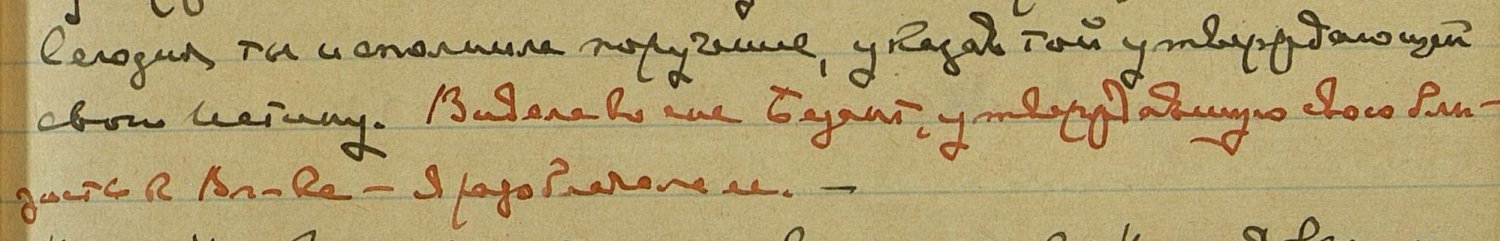 Сегодня ты исполнила поручение, указав той утверждающей
свою истину. Видела во сне Безант, утверждавшую свою бли-
зость к Вл-ке – Я разоблачала ее. –